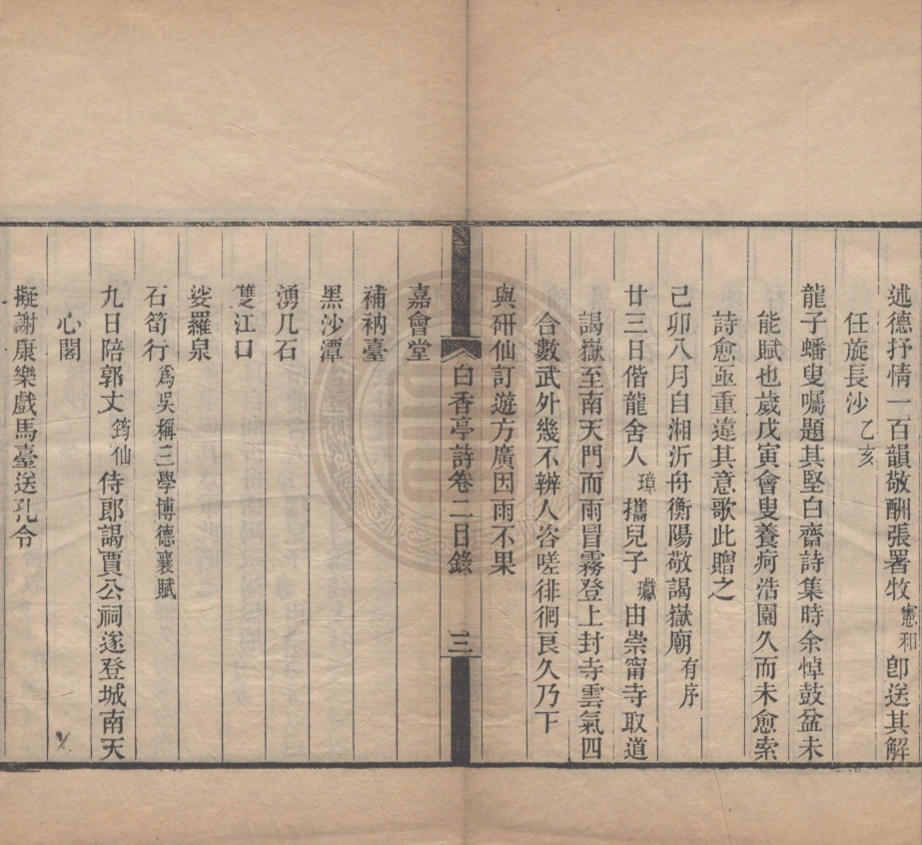 述德抒情一百韻敬酬張署牧憲和卽送其解
任旋長沙乙亥
龍子蟠叟囑題其堅白齋詩集時余悼鼓盆未
能賦也歲戊寅會叟養疴浩園久而未愈索
詩愈亟重違其意歌此贈之
己卯八月自湘泝舟衡陽敬謁嶽廟有序
廿三日偕龍舍人璋攜兒子瓛由崇甯寺取道
謁嶽至南天門而雨冒霧登上封寺雲氣四
合數武外幾不辨人咨嗟徘徊良久乃下
與研仙訂遊方廣因雨不果
白香亭詩卷二目錄 三
嘉會堂
補衲臺
黑沙潭
湧几石
雙江口
娑羅泉
石筍行爲吳稱三學博德襄賦
九日陪郭丈筠仙侍郎謁賈公祠遂登城南天
心閣
擬謝康樂戲馬臺送孔令